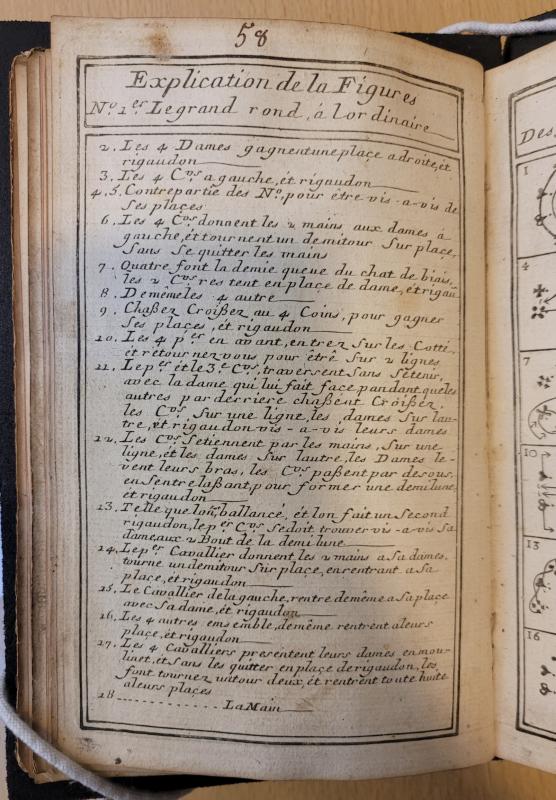 58
Explication de la Figures
No. 1er Le grand rond, á Lordinaire
2. Les 4 Dames gagnent une place a droite, èt
rigaudon
3. Les 4 Cvrs a gauche, èt rigaudon
4.5. Contrepartie des No, pour être vis-a-vis de
Ses places
6. Les 4 Cvrs donnent les 2 mains, aux dames à
gauche, èt tournent un demitour Sur place,
Sans Se quitter les mains
7. Quatre font la demie queue du chat de biais,
les 2 Cvrs restent en place de dame, èt rigau
8. De même les 4 autre
9. Chaßez Croißez au 4 Coins, pour gagner
Ses places, èt rigaudon
10. Les 4 per en avant, entrez Sur les Cotté,
èt retournez vous pour être Sur 2 lignes
11. Le per èt le 3e Cvrs, traversent Sans Setenir,
avec la dame qui lui fait face pandant que les
autres par derriere chaßent Croißez,
les Cvrs Sur une ligne, les dames Sur lau-
tre, èt rigaudon vis-a-vis leurs dames
12. Les Cvrs Setiennent par les mains, Sur une
ligne, èt les dames Sur lautre, les Dames le-
vent leurs bras, les Cvrs paßent par desous,
en Sentrelaßant, pour former une demilune
èt rigaudon
13. Telle que lon, ballancé, èt lon fait un Second
rigaudon, le per Cvrs Se doit trouver vis-a-vis Sa
dame aux 2 Bout de la demi lune
14. Le per Cavallier donnent, les 2 mains a Sa dames,
tourne un demitour Sur place, en rentrant a Sa
place, èt rigaudon
15. Le Cavallier de la gauche, rentre de même a Sa place
avec Sa dame, èt rigaudon
16. Les 4 autres emsemble, de même rentrent a leurs
place, èt rigaudon
17. Les 4 Cavalliers presentent leurs dames en mou-
linet, èt Sans les quitter en place de rigaudon, les
font tournez un tour deux, èt rentrent toute huite
a leurs places
18 ............ La Main
Des
1
4
7
10
13
16